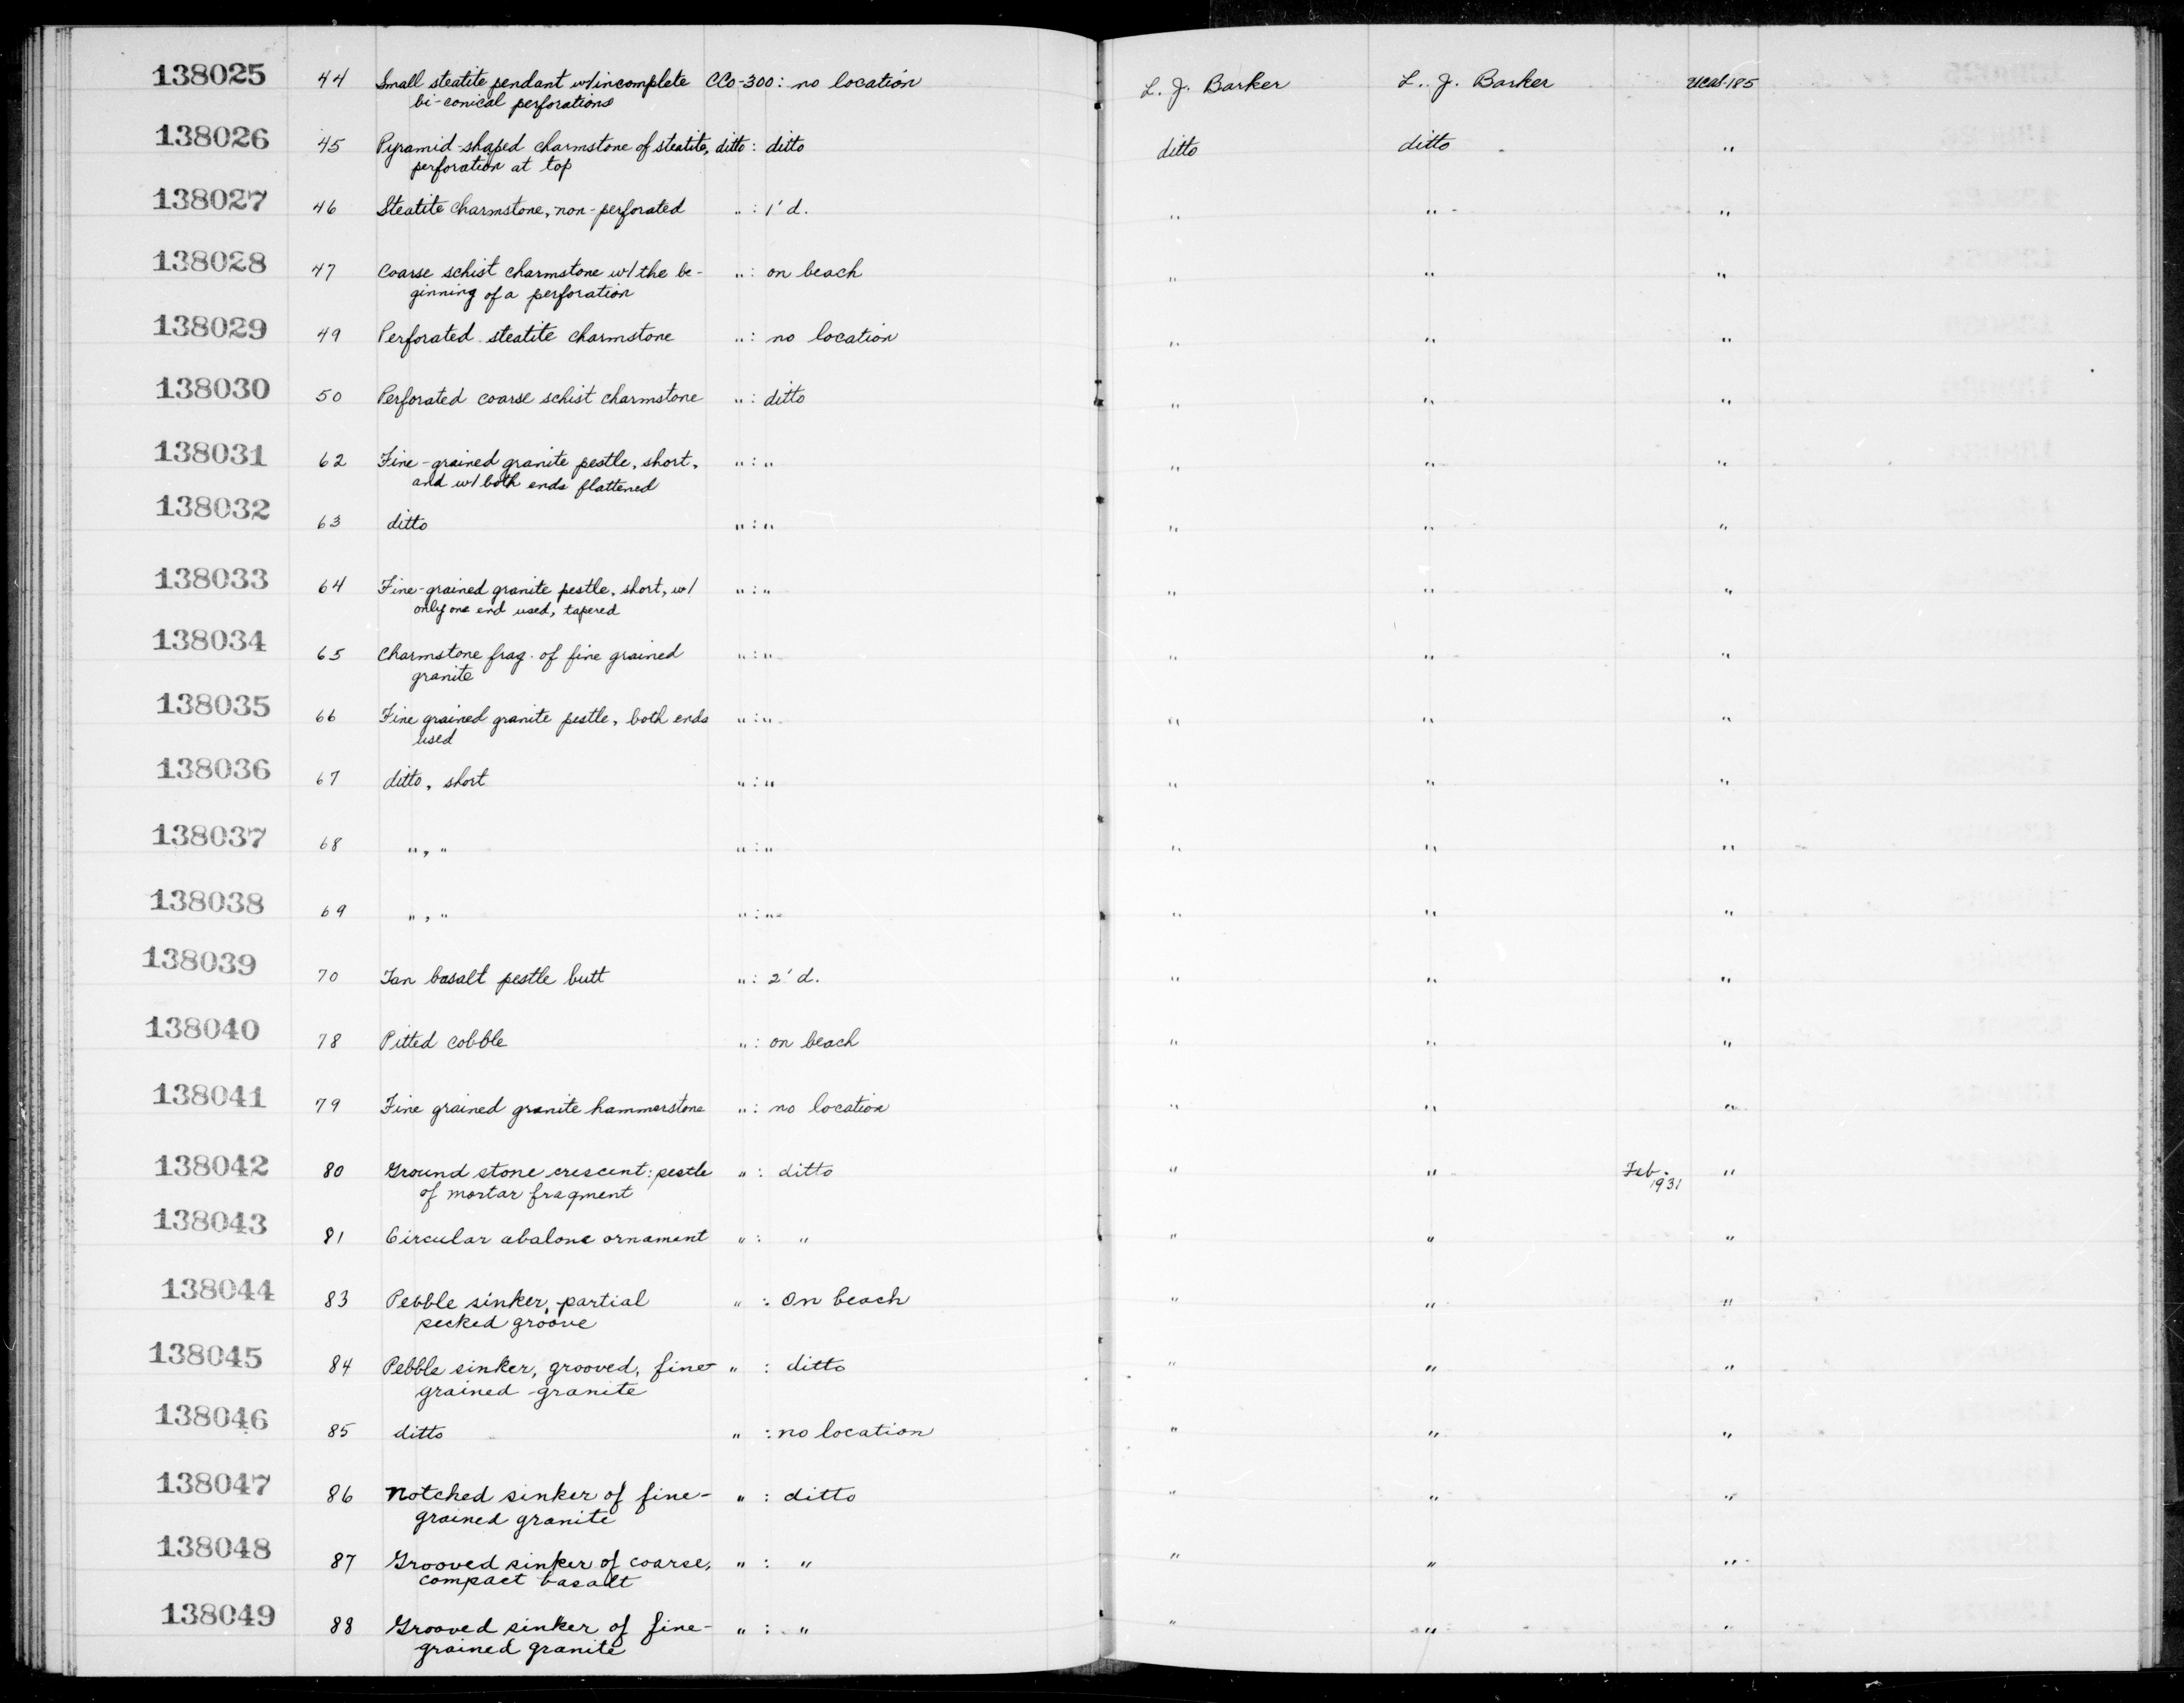 138025 44 Small steatite pendant w/incomplete CCo-300: no location L. J. Barker L. J. Barker UCAS-185
bi-conical perforations
138026 45 Pyramid-shaped charmstone of steatite, ditto: ditto ditto ditto "
perforation at top
138027 46 Steatite charmstone, non-perforated " : 1' d. " " "
138028 47 Coarse schist charmstone w/the be- " : on beach " " "
ginning of a perforation
138029 49 Perforated steatite charmstone " : no location " " "
138030 50 Perforated coarse schist charmstone " : ditto " " "
138031 62 Fine-grained granite pestle, short, " : " " " "
and w/ both ends flattened
138032 63 ditto " : " " " "
138033 64 Fine-grained granite pestle, short, w/ " : " " " "
only one end used, tapered
138034 65 Charmstone frag. of fine grained " : " " " "
granite
138035 66 Fine grained granite pestle, both ends " : " " " "
used
138036 67 ditto, short " : " " " "
138037 68 " , " " : " " " "
138038 69 " , " " : " " " "
138039 70 Tan basalt pestle butt " : 2' d. " " "
138040 78 Pitted cobble " : on beach " " "
138041 79 Fine grained granite hammerstone " : no location " " "
138042 80 Ground stone crescent: pestle " : ditto " " Feb. "
of mortar fragment 1931
138043 81 Circular abalone ornament " : " " " "
138044 83 Pebble sinker, partial " : On beach " " "
pecked groove
138045 84 Pebble sinker, grooved, fine- " : ditto " " "
grained granite
138046 85 ditto " : no location " " "
138047 86 Notched sinker of fine- " : ditto " " "
grained granite
138048 87 Grooved sinker of coarse, " : " " " "
compact basalt
138049 88 Grooved sinker of fine- " : " " " "
grained granite